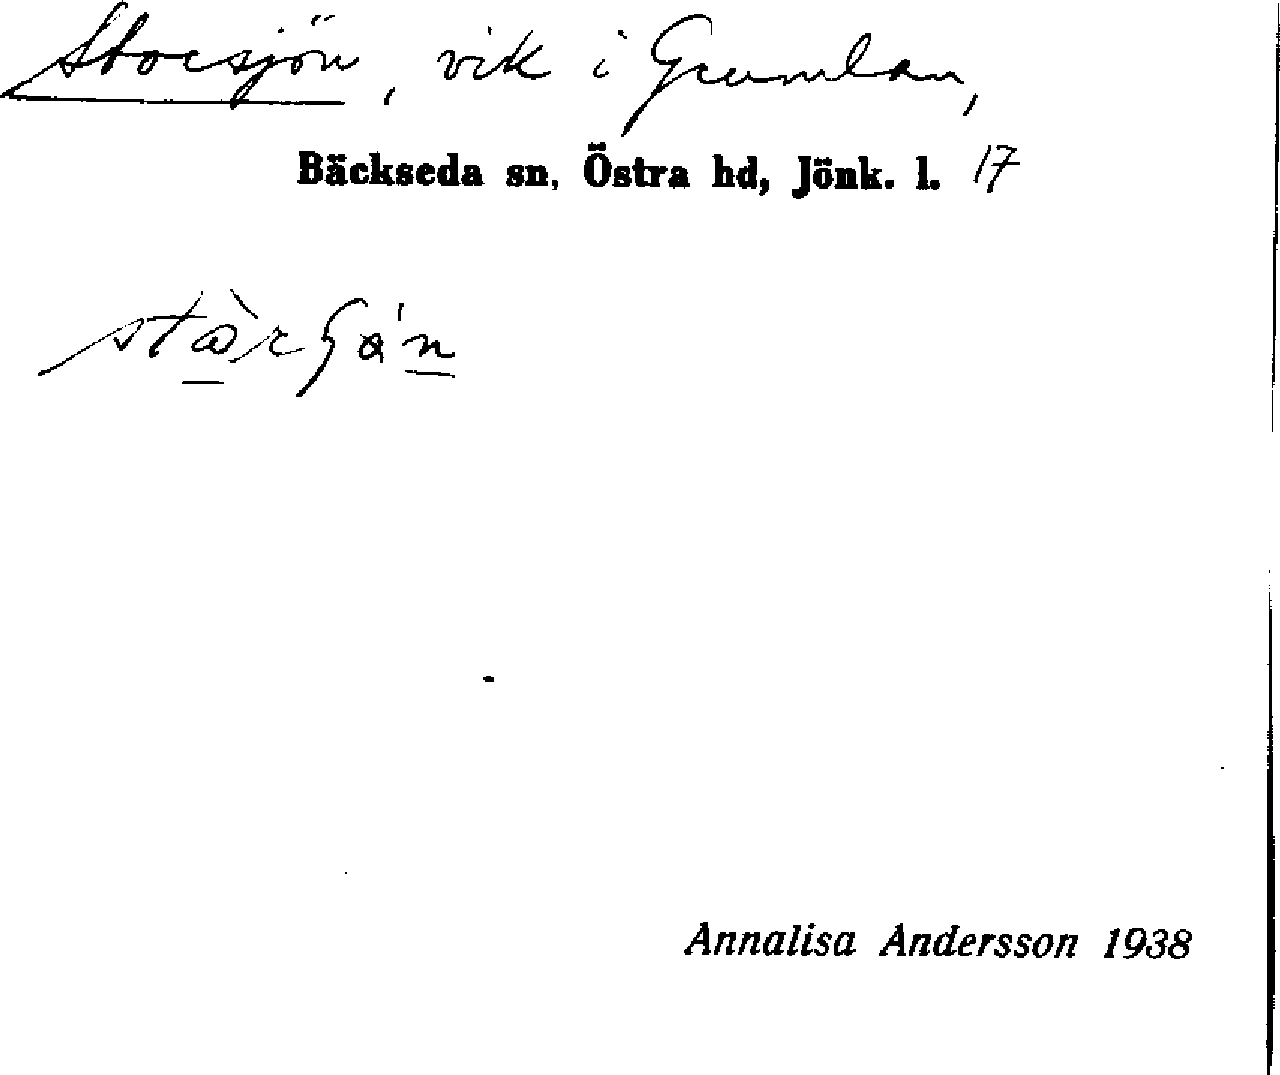 Storsjön, vik i Grumlan,
Bäckseda sn, Östra hd, Jönk. l. 17
Annalisa Andersson 1938